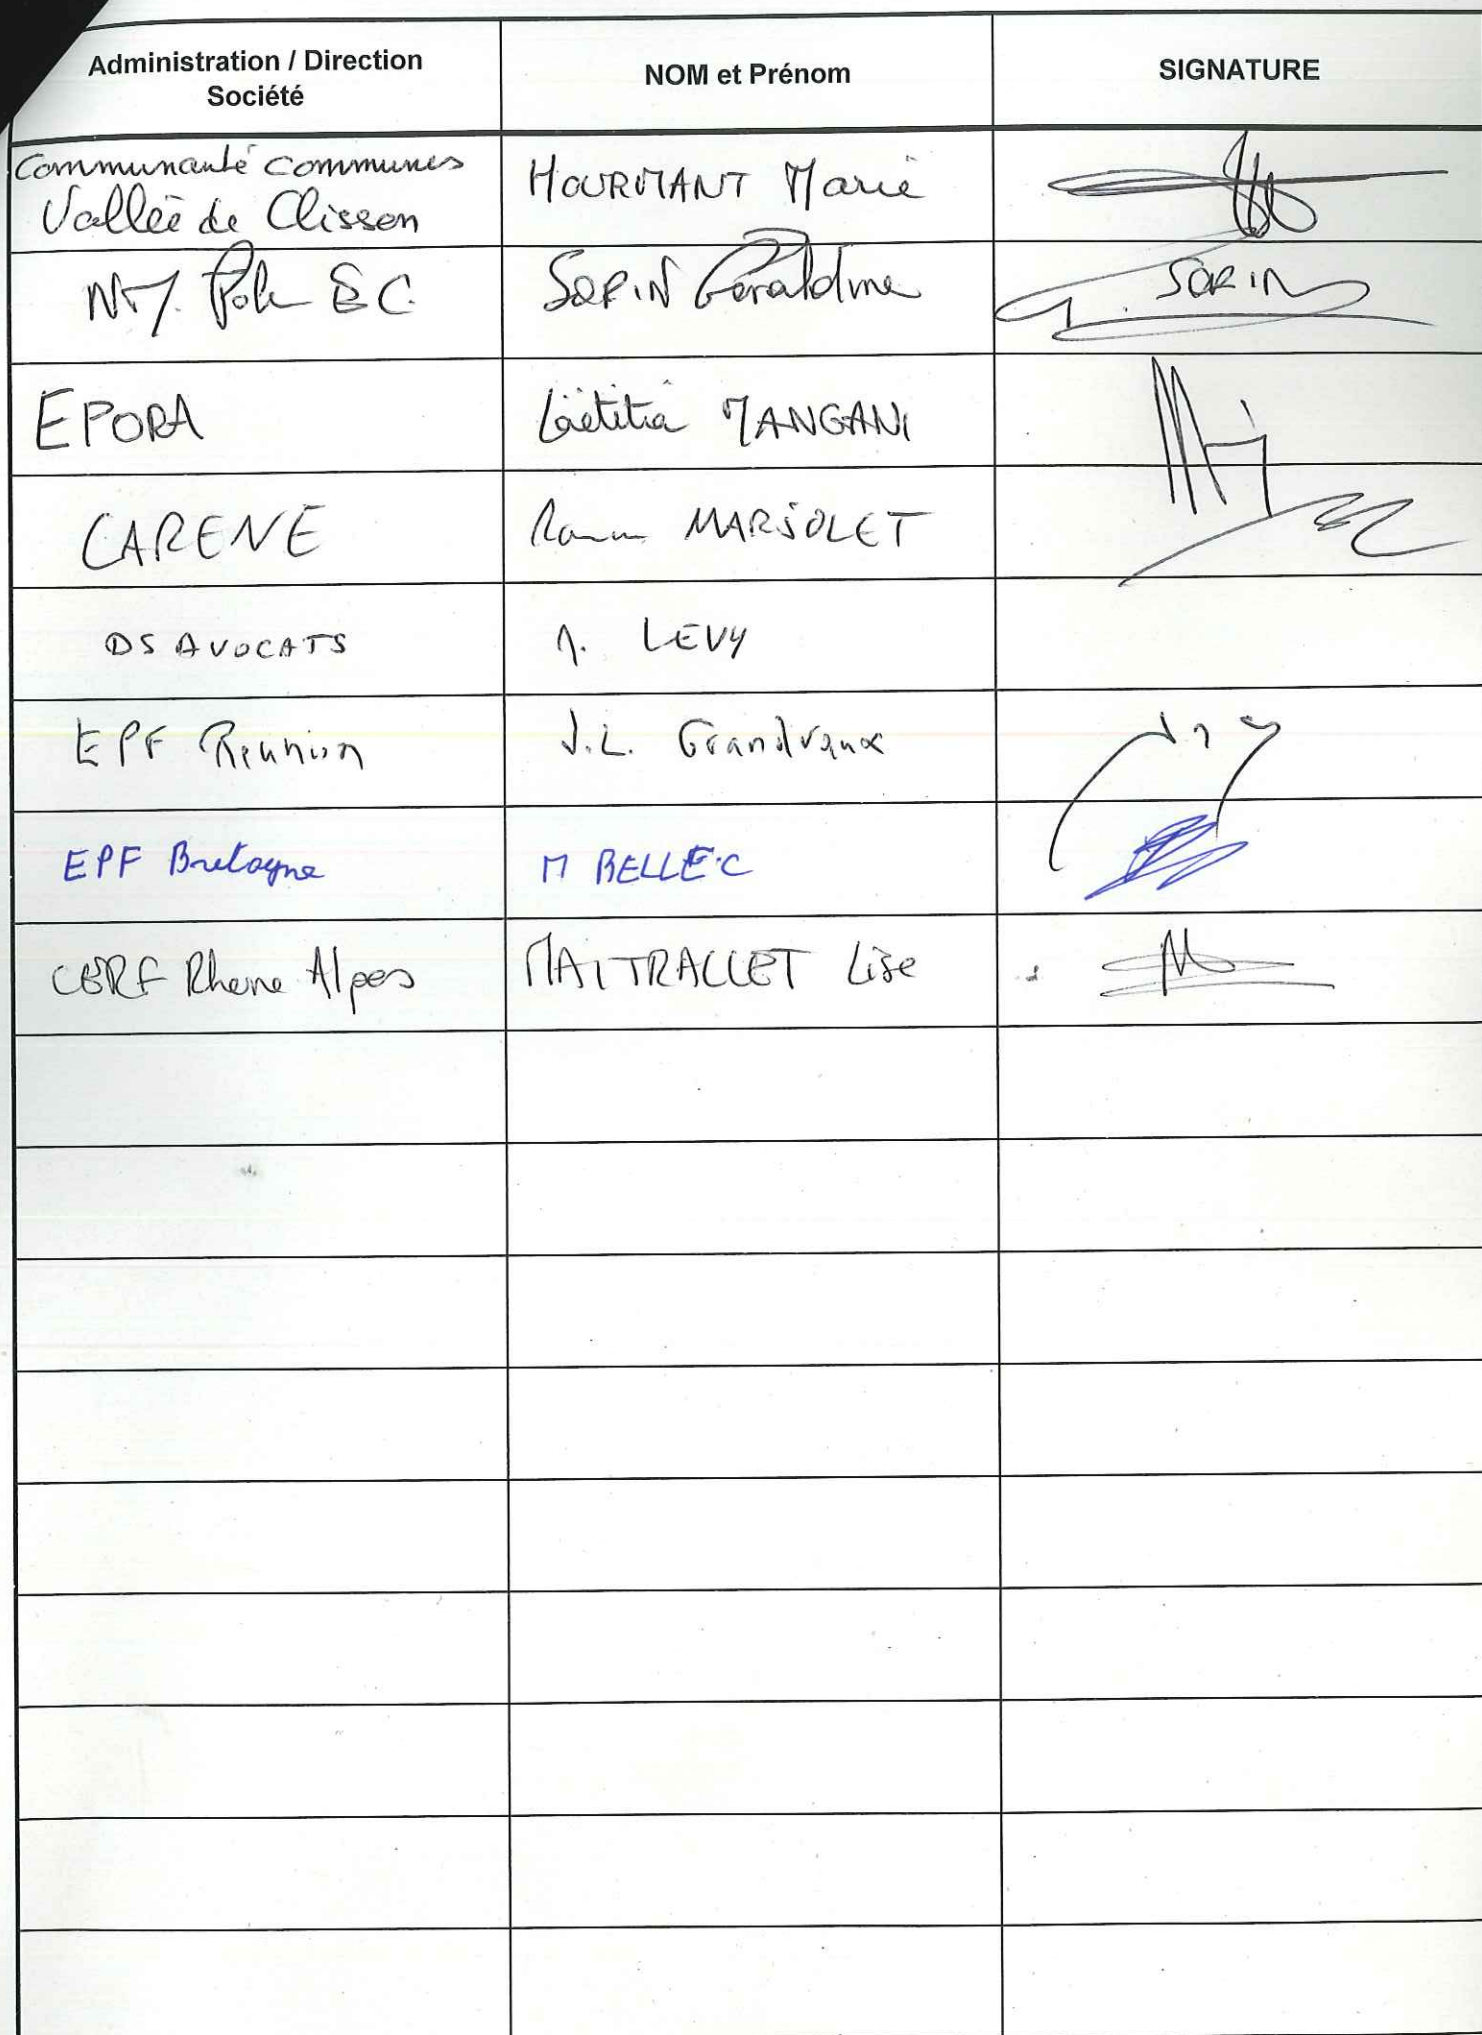 Administration / Direction
Société
NOM et Prénom
SIGNATURE
Communauté Communes
Vallée de Clisson
HOURMANT Marie
Pole EC
SORIN Géraldine
SORIN
EPORA
Laëtitia MANGANI
CARENE
MARSOLET
DS AVOCATS
LEVY
EPF Réunion
J.L. Grandvaux
EPF Bretagne
M BELLEC
CERF Rhone Alpes
MAITRALLET Lise